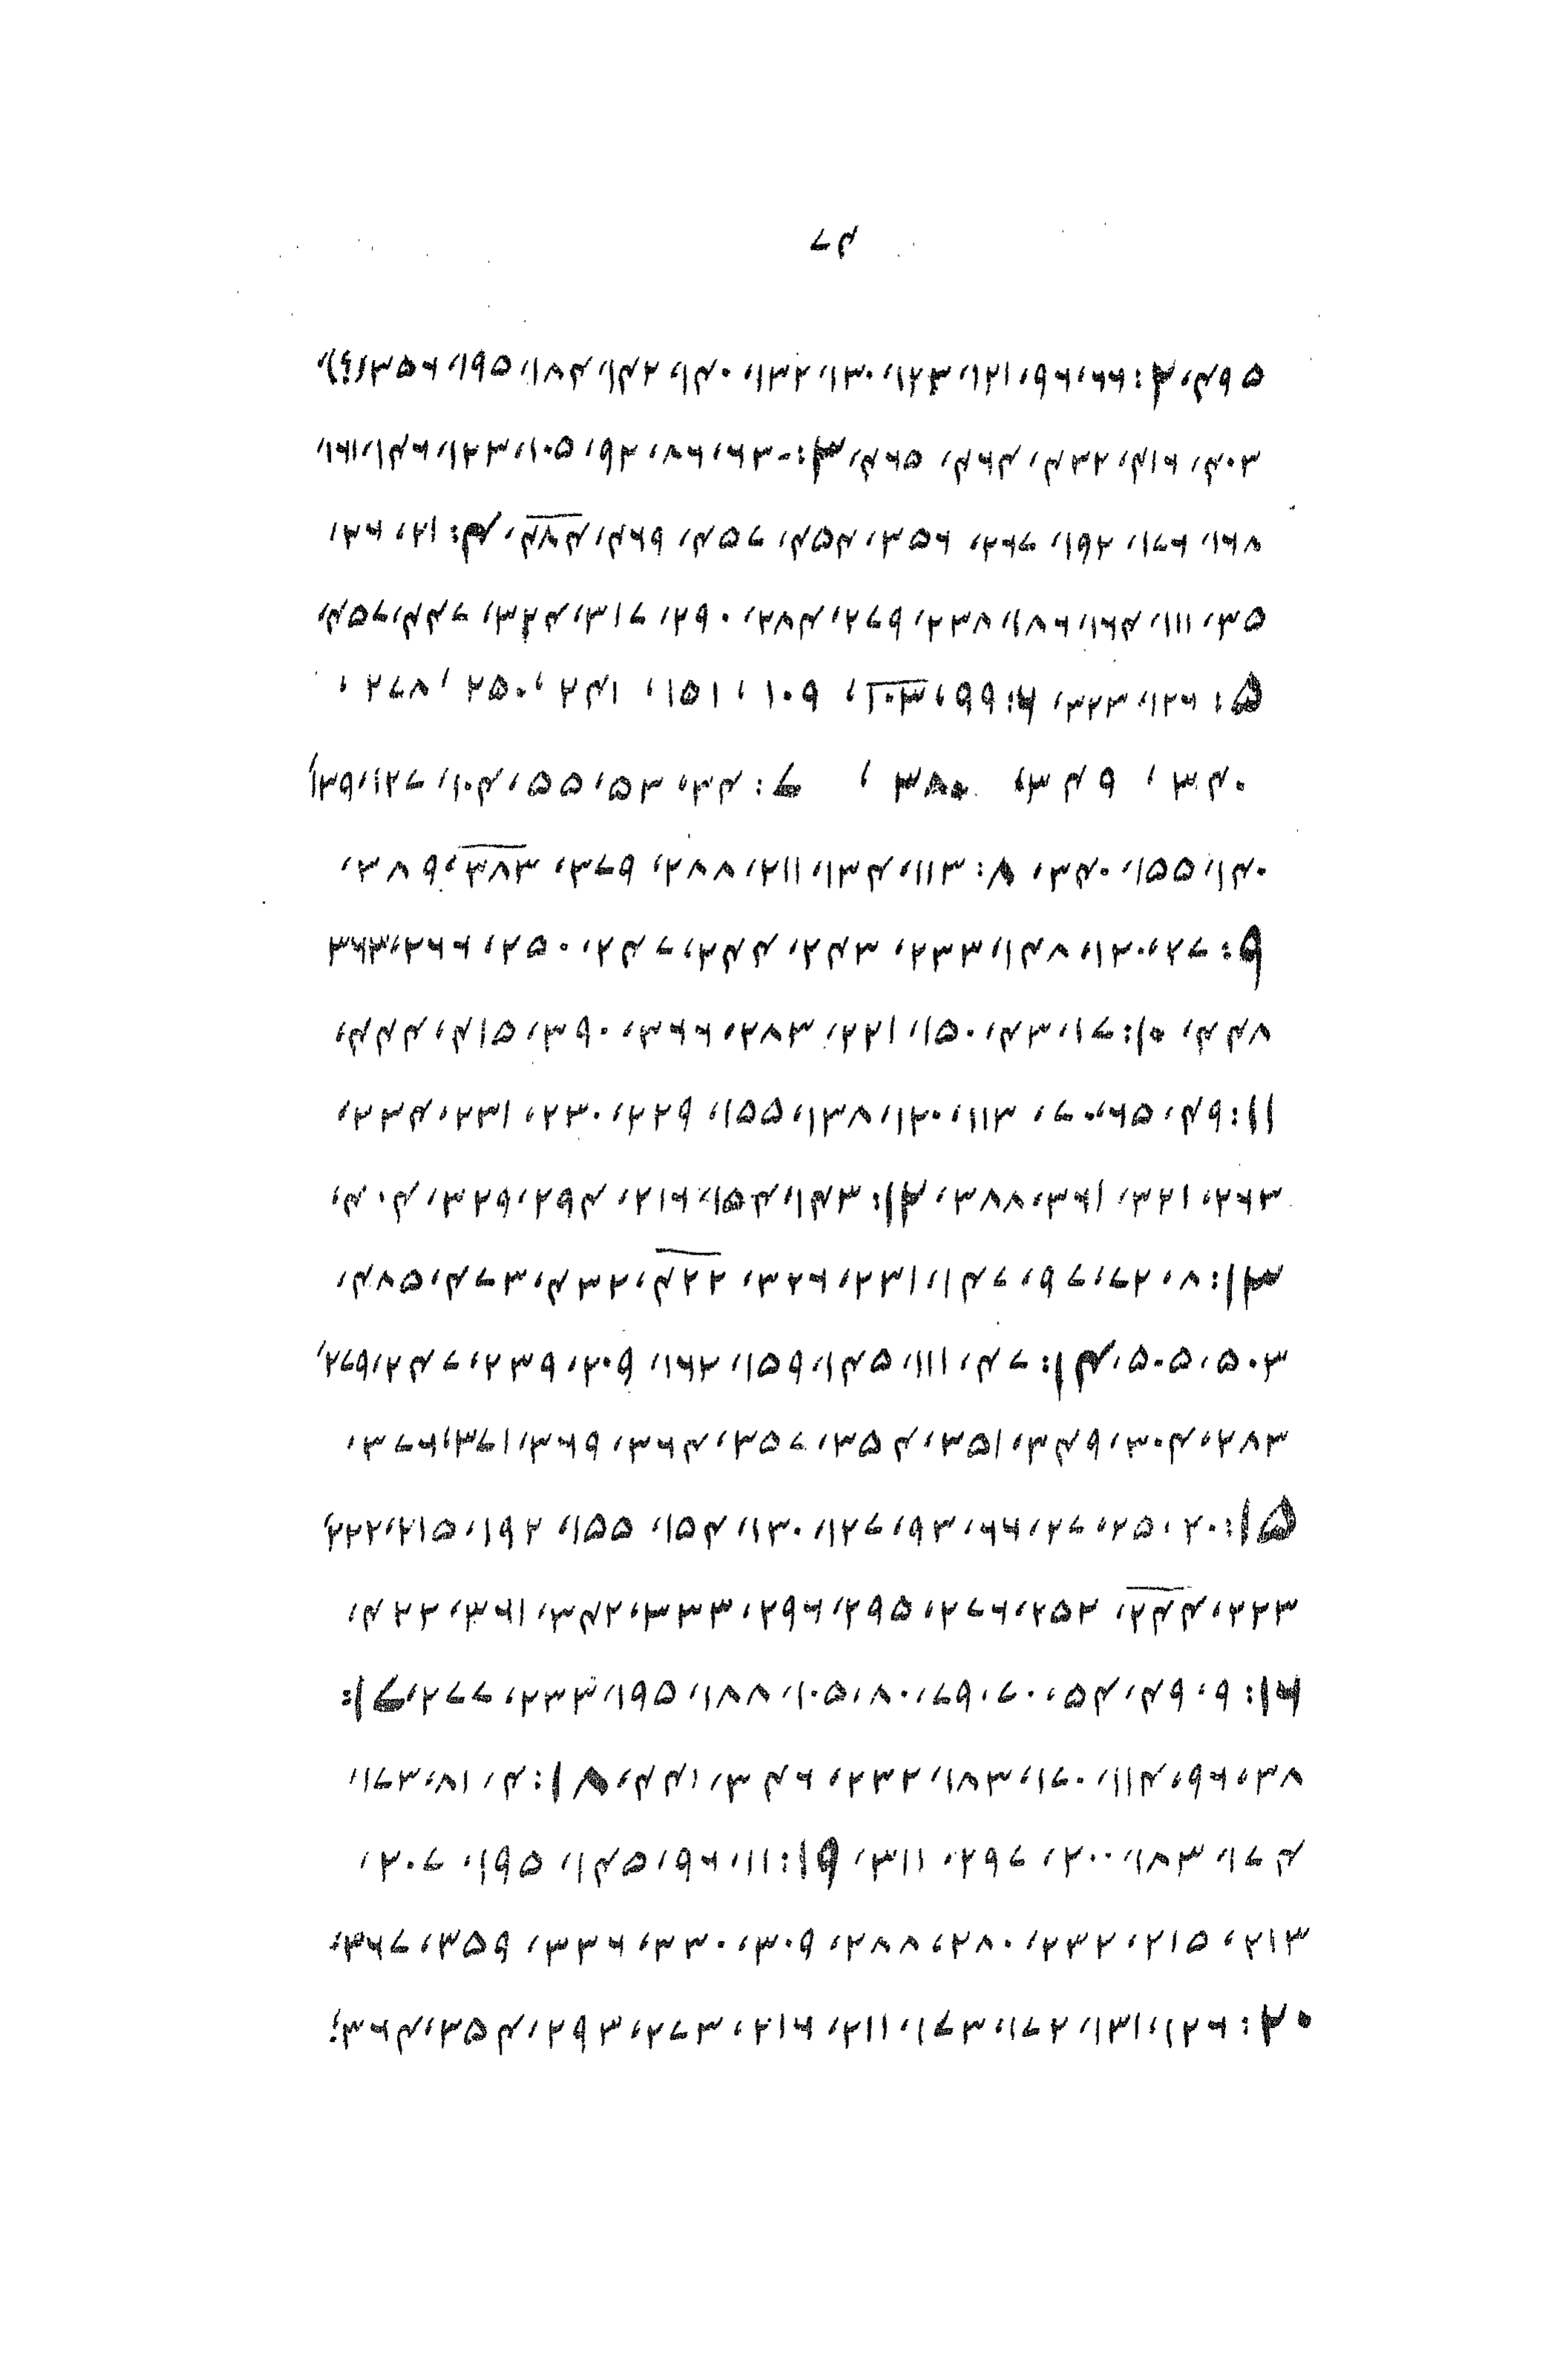 ۷۴
۴۹۵، ۲: ۶۶، ۹۶، ۱۲۱، ۱۲۳، ۱۳۰، ۱۳۲، ۱۴۰، ۱۴۲، ۱۸۴، ۱۹۵، ۳۵۶(؟)،
۴۰۳، ۴۱۶، ۴۲۲، ۴۶۴، ۴۶۵، ۳:- ۳۶، ۸۶، ۹۲، ۱۰۵، ۱۲۳، ۱۴۶، ۱۶۱،
۱۶۸، ۱۷۶، ۱۹۲، ۲۶۷، ۳۵۶، ۴۵۴، ۴۵۷، ۴۶۹، ۴۸۴، ۴: ۲۱، ۲۶،
۳۵، ۱۱۱، ۱۶۴، ۱۸۶، ۲۳۸، ۲۷۹، ۲۸۴، ۲۹۰، ۳۱۷، ۳۲۴، ۴۴۷، ۴۵۷،
۵: ۱۲۶، ۳۲۳، ۶: ۹۹، ۱۰۳، ۱۰۹، ۱۵۱، ۲۴۱، ۲۵۰، ۲۷۸،
۳۴۰، ۳۴۹، ۳۸۰، ۷: ۳۴، ۵۳، ۵۵، ۱۰۴، ۱۲۷، ۱۳۹،
۱۴۰، ۱۵۵، ۳۴۰، ۸: ۱۱۳، ۱۳۴، ۲۱۱، ۲۸۸، ۳۷۹، ۳۸۳، ۳۸۹،
۹: ۲۷، ۱۲۰، ۱۴۸، ۲۳۳، ۲۴۳، ۲۴۴، ۲۴۷، ۲۵۰، ۲۶۶، ۳۶۳
۴۴۸، ۱۰: ۱۷، ۴۳، ۱۵۰، ۲۲۱، ۲۸۳، ۳۶۶، ۳۹۰، ۴۱۵، ۴۴۴،
۱۱: ۴۹، ۶۵، ۷۰، ۱۱۳، ۱۲۰، ۱۳۸، ۱۵۵، ۲۲۹، ۲۳۰، ۲۳۱، ۲۳۴،
۲۶۳، ۳۲۱، ۳۶۱، ۳۸۸، ۱۲: ۱۴۳، ۱۵۴، ۲۱۶، ۲۹۴، ۳۲۹، ۴۰۴،
۱۳: ۸، ۲۷، ۷۹، ۱۴۷، ۲۳۱، ۳۲۶، ۴۲۲، ۴۳۲، ۴۷۳، ۴۸۵،
۵۰۳، ۵۰۵، ۱۴: ۴۷، ۱۱۱، ۱۴۵، ۱۵۹، ۱۶۲، ۲۰۹، ۲۳۹، ۲۴۷، ۲۷۹،
۲۸۳، ۳۰۴، ۳۴۹، ۳۵۱، ۳۵۴، ۳۵۷، ۳۶۴، ۳۶۹، ۳۷۱، ۳۷۶،
۱۵: ۲۰، ۲۵، ۲۷، ۶۶، ۹۳، ۱۲۷، ۱۳۰، ۱۵۴، ۱۵۵، ۱۹۲، ۲۱۵، ۲۲۲،
۲۲۳، ۲۴۴، ۲۵۲، ۲۷۶، ۲۹۵، ۲۹۶، ۳۳۳، ۳۴۲، ۳۶۱، ۴۲۲،
۱۶: ۹، ۴۹، ۵۴، ۷۰، ۷۹، ۸۰، ۱۰۵، ۱۸۸، ۱۹۵، ۲۳۳، ۲۷۷، ۱۷:
۳۸، ۹۶، ۱۱۴، ۱۷۰، ۱۸۳، ۲۳۲، ۳۴۶، ۴۴۱، ۱۸: ۴، ۸۱، ۱۷۳،
۱۷۴، ۱۸۳، ۲۰۰، ۲۹۷، ۳۱۱، ۱۹: ۱۱، ۹۶، ۱۴۵، ۱۹۵، ۲۰۷،
۲۱۳، ۲۱۵، ۲۳۲، ۲۸۰، ۲۸۸، ۳۰۹، ۳۳۰، ۳۳۶، ۳۵۹، ۳۶۷،
۲۰: ۱۲۶، ۱۳۱، ۱۷۲، ۱۷۳، ۲۱۱، ۲۱۶، ۲۷۳، ۲۹۳، ۳۵۴، ۳۶۴،